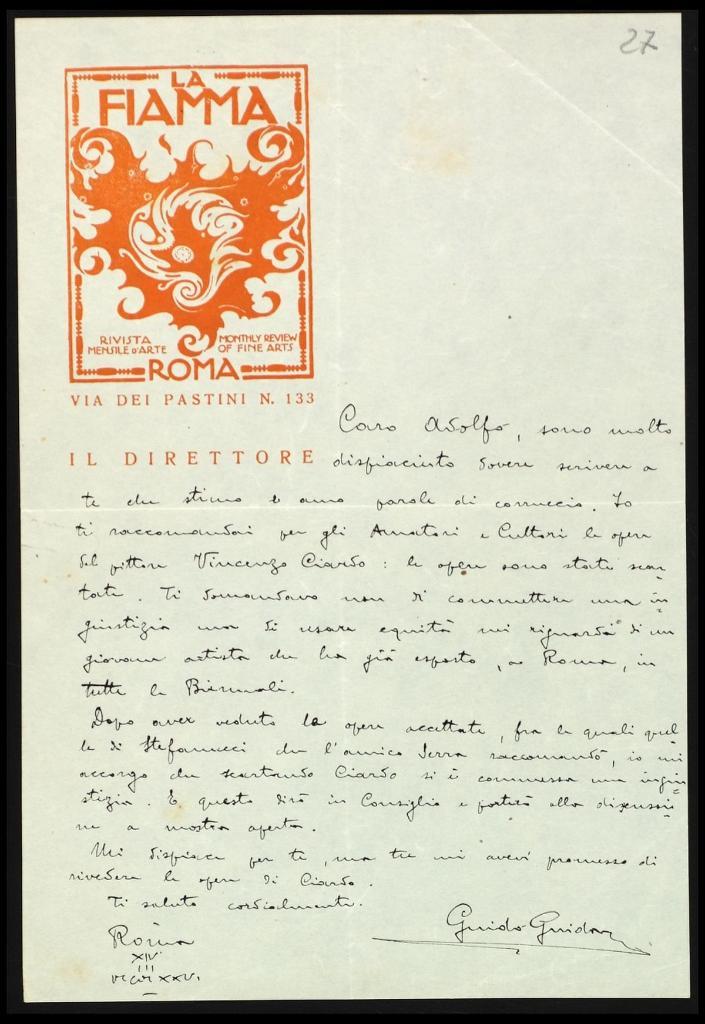 27
LA
FIAMMA
RIVISTA MENSILE D'ARTE
MONTHLY REVIEW OF FINE ARTS
ROMA
VIA DEI PASTINI N. 133
IL DIRETTORE
Caro Adolfo, sono molto
dispiaciuto dovere scrivere a
te che stimo e amo parole di corruccio. Io
ti raccomandai per gli Amatori e Cultori le opere
del pittore Vincenzo Ciardo: le opere sono state scar-
tate. Ti domandavo non di commettere una in
giustizia ma di usare equità nei riguardi di un
giovane artista che ha già esposto, a Roma, in
tutte le Biennali.
Dopo aver veduto le opere accettate, fra le quali quel
le di Stefanucci che l'amico Serra raccomandò, io mi
accorgo che scartando Ciardo si è commessa una ingiu
stizia. E questo dirò in Consiglio e porterò alla discussio
ne a mostra aperta.
Mi dispiace per te, ma tu mi avevi promesso di
rivedere le opere di Ciardo.
Ti saluto cordialmente.
Guido Guida
Roma
XIV
III
XXV.